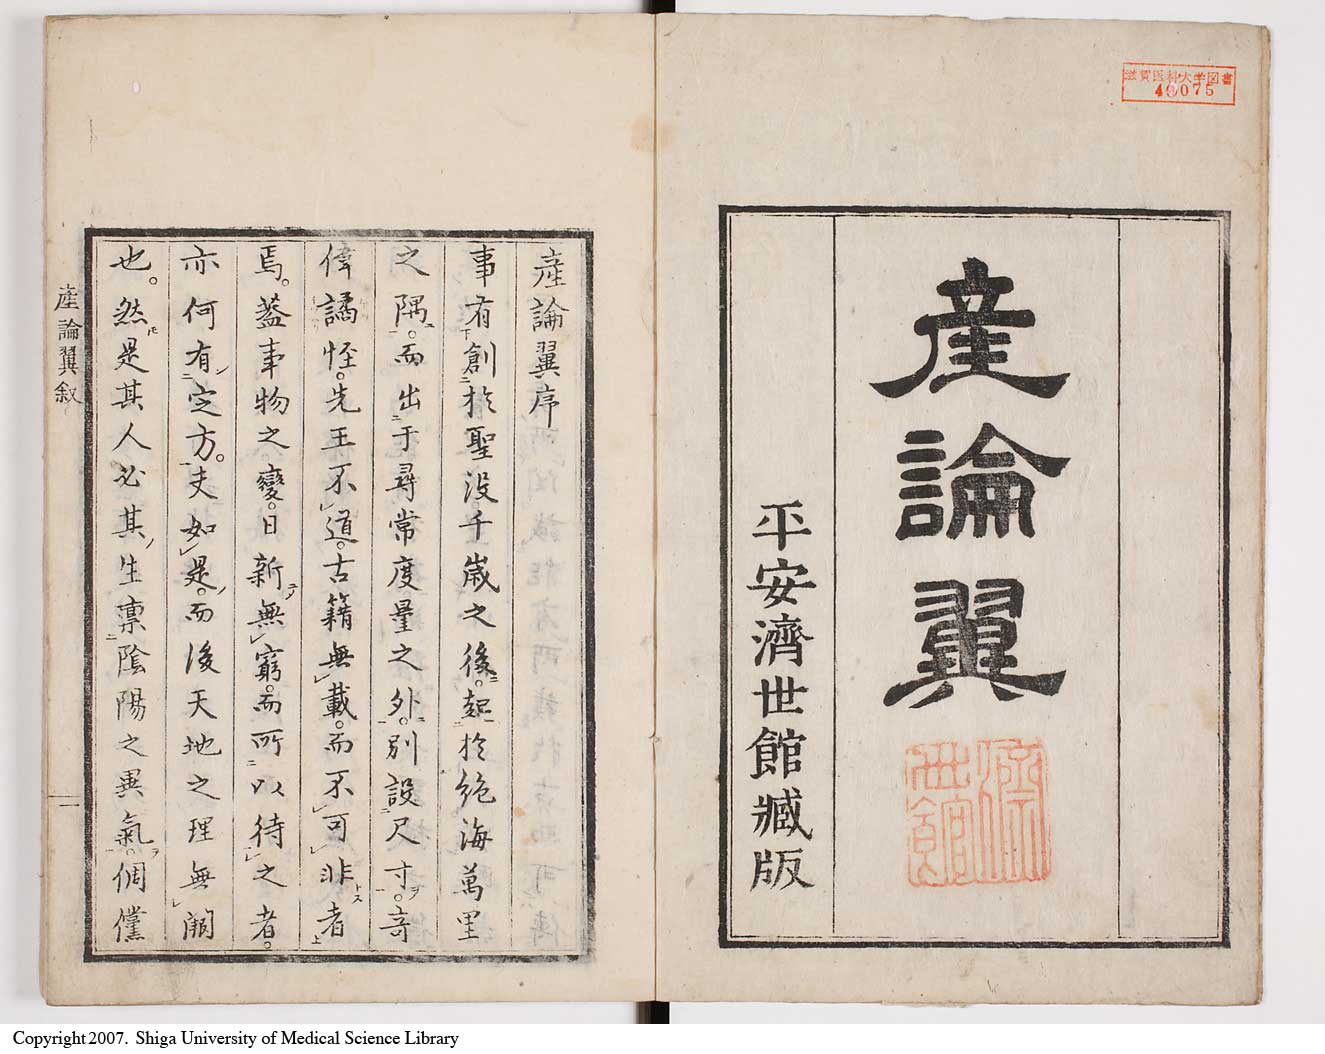 滋賀医科大学図書
49075
産論翼
平安濟世館藏版
濟世館
產論翼序
事有創於聖没千歳之後。起於絶海萬里
之隅。而出于尋常度量之外。別設尺寸。奇
偉譎恠。先王不道。古籍無載。而不可非者
焉。葢事物之變。日新無窮。而所以待之者。
亦何有定方。夫如是。而後天地之理無漏
也。然是其人必其生禀陰陽之異氣。倜儻
產論翼叙
一
Copyright 2007. Shiga University of Medical Science Library